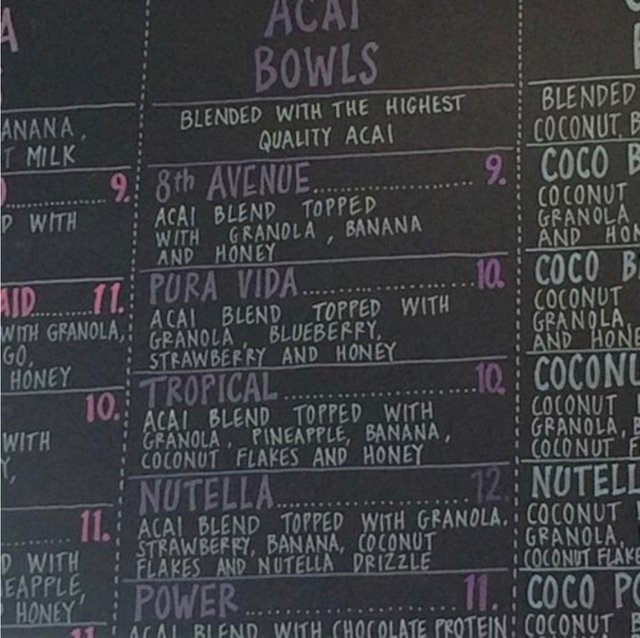 ACAI
BOWLS
BLENDED WITH THE HIGHEST
QUALITY ACAI
8th AVENUE.................... 9.
ACAI BLEND TOPPED
WITH GRANOLA, BANANA
AND HONEY
PURA VIDA.................... 10.
ACAI BLEND TOPPED WITH
GRANOLA, BLUEBERRY,
STRAWBERRY AND HONEY
TROPICAL.................... 10.
ACAI BLEND TOPPED WITH
GRANOLA, PINEAPPLE, BANANA,
COCONUT FLAKES AND HONEY
NUTELLA.................... 12.
ACAI BLEND TOPPED WITH GRANOLA,
STRAWBERRY, BANANA, COCONUT
FLAKES AND NUTELLA DRIZZLE
POWER.................... 11.
ACAI BLEND WITH CHOCOLATE PROTEIN
A
ANANA,
T MILK
9.
D WITH
AID........ 11.
WITH GRANOLA,
GO,
HONEY
10.
WITH
Y,
11.
D WITH
EAPPLE,
HONEY
11.
BLENDED
COCONUT, B
COCO B
COCONUT
GRANOLA
AND HON
COCO B
COCONUT
GRANOLA,
AND HONE
COCONU
COCONUT
GRANOLA, B
COCONUT F
NUTELL
COCONUT
GRANOLA,
COCONUT FLAKE
COCO PO
COCONUT